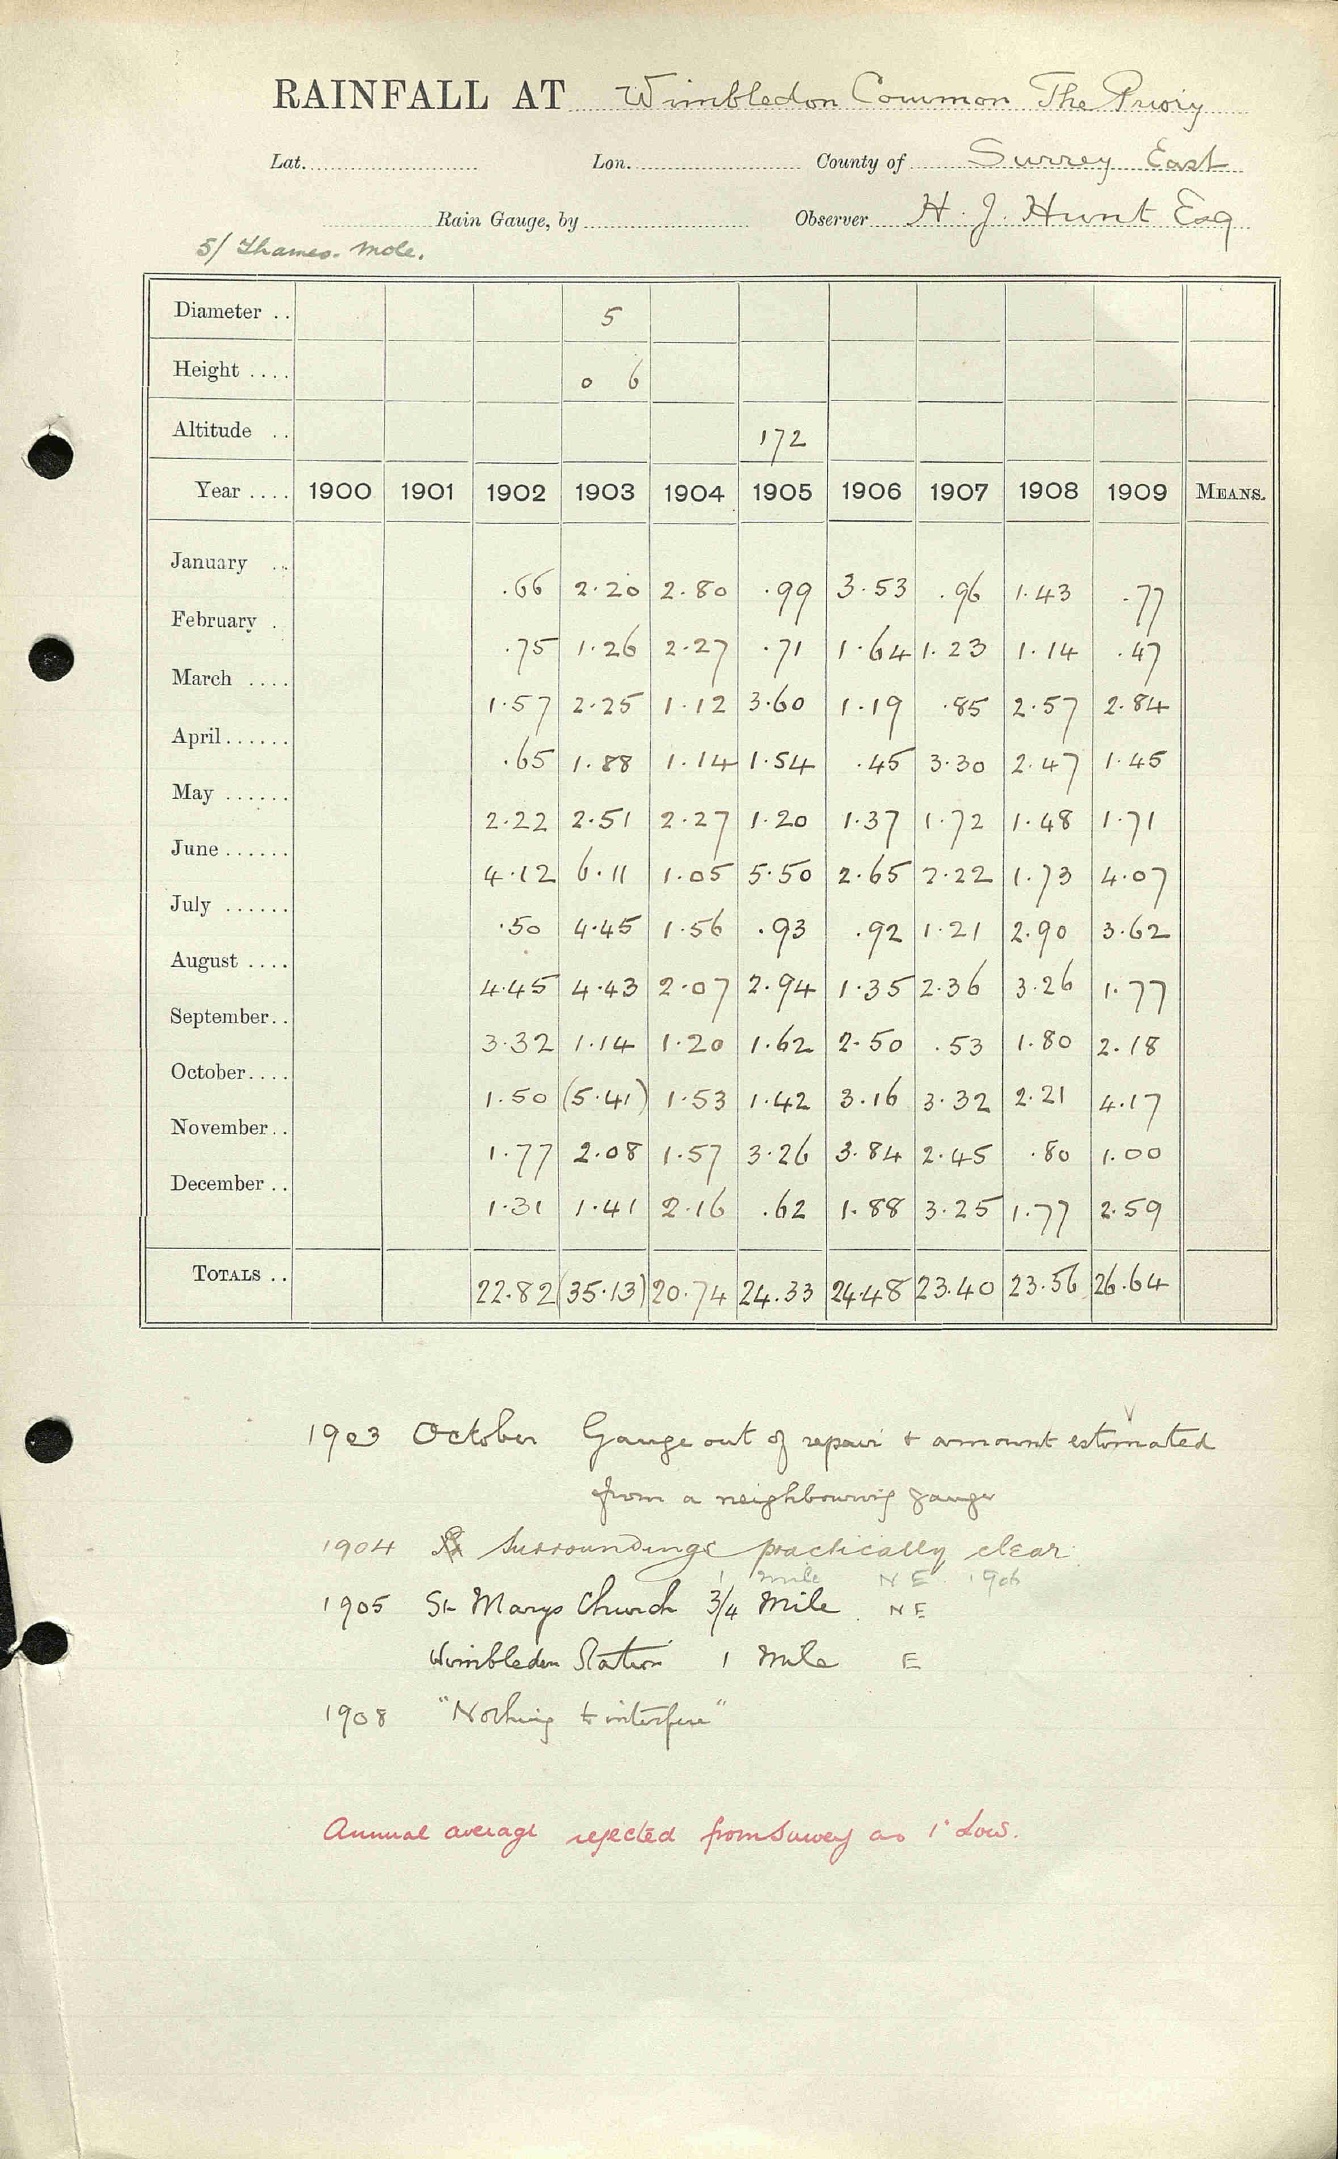 RAINFALL AT Wimbledon Common The Priory
Lat. Lon. County of Surrey East
Rain Gauge, by Observer H. J. Hunt Esq
5/ Thames. Mole.
Diameter .. 5
Height .... 0 6
Altitude .. 172
Year .... 1900 1901 1902 1903 1904 1905 1906 1907 1908 1909 MEANS.
January .. .66 2.20 2.80 .99 3.53 .96 1.43 .77
February . .75 1.26 2.27 .71 1.64 1.23 1.14 .47
March .... 1.57 2.25 1.12 3.60 1.19 .85 2.57 2.84
April...... .65 1.88 1.14 1.54 .45 3.30 2.47 1.45
May ...... 2.22 2.51 2.27 1.20 1.37 1.72 1.48 1.71
June ...... 4.12 6.11 1.05 5.50 2.65 2.22 1.73 4.07
July ...... .50 4.45 1.56 .93 .92 1.21 2.90 3.62
August .... 4.45 4.43 2.07 2.94 1.35 2.36 3.26 1.77
September.. 3.32 1.14 1.20 1.62 2.50 .53 1.80 2.18
October.... 1.50 (5.41) 1.53 1.42 3.16 3.32 2.21 4.17
November.. 1.77 2.08 1.57 3.26 3.84 2.45 .80 1.00
December .. 1.31 1.41 2.16 .62 1.88 3.25 1.77 2.59
TOTALS .. 22.82 (35.13) 20.74 24.33 24.48 23.40 23.56 26.64
1903 October Gauge out of repair + amount estimated
from a neighbouring gauge
1904 Surroundings practically clear
1 mile NE 1906
1905 St Marys Church 3/4 Mile NE
Wimbledon Station 1 Mile E
1908 "Nothing to interfere"
Annual average rejected from Survey as 1" low.